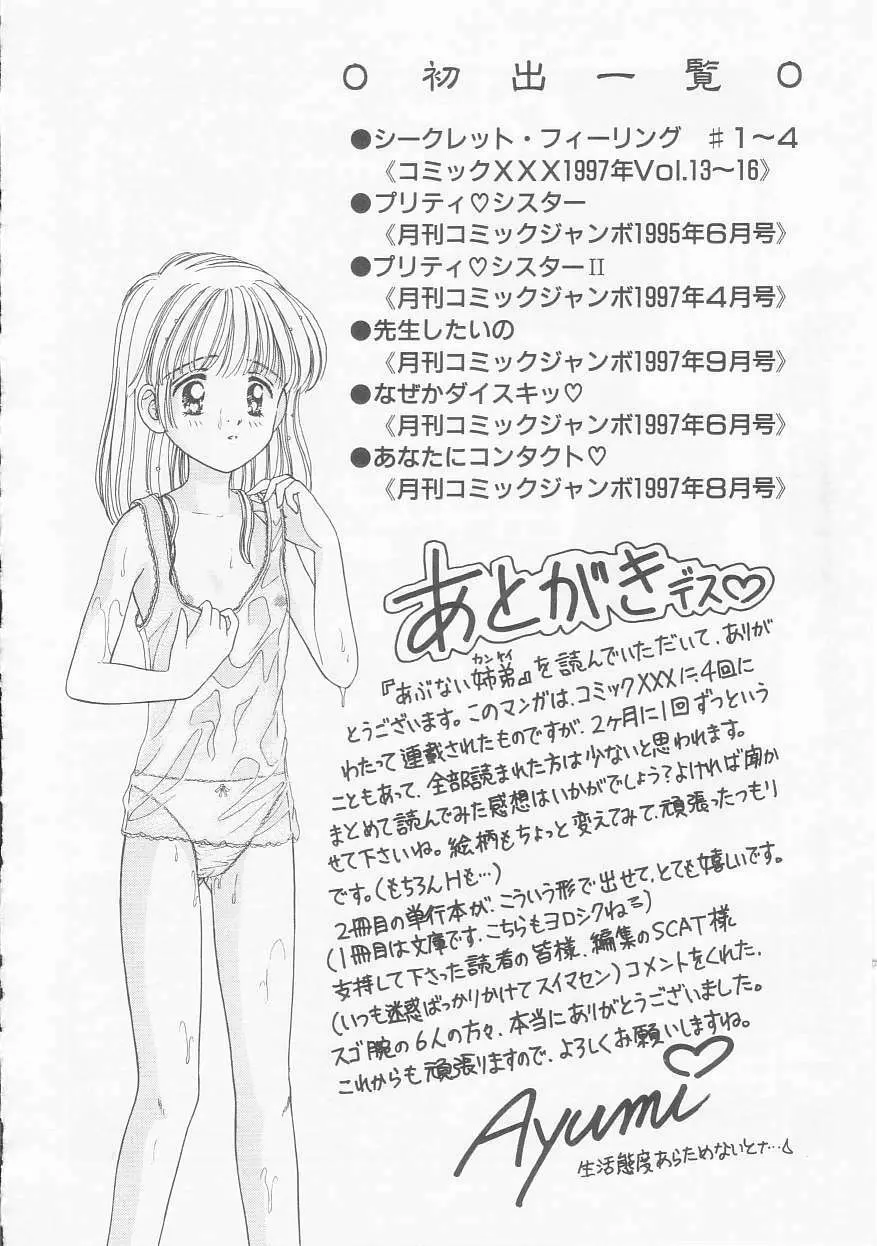 ○ 初出一覧 ○
●シークレット・フィーリング ♯1～4
《コミックXXX1997年Vol.13～16》
●プリティ♡シスター
《月刊コミックジャンボ1995年6月号》
●プリティ♡シスターⅡ
《月刊コミックジャンボ1997年4月号》
●先生したいの
《月刊コミックジャンボ1997年9月号》
●なぜかダイスキッ♡
《月刊コミックジャンボ1997年6月号》
●あなたにコンタクト♡
《月刊コミックジャンボ1997年8月号》
あとがきデス♡
カンケイ
『あぶない姉弟』を読んでいただいて、ありが
とうございます。このマンガは、コミックXXXに、4回に
わたって連載されたものですが、2ヶ月に1回ずつという
こともあって、全部読まれた方は少ないと思われます。
まとめて読んでみた感想はいかがでしょう?よければ聞か
せて下さいね。絵柄もちょっと変えてみて、頑張ったつもり
です。(もちろんHも…)
2冊目の単行本が、こういう形で出せて、とても嬉しいです。
(1冊目は文庫です、こちらもヨロシクね)
支持して下さった読者の皆様、編集のSCAT様
(いつも迷惑ばっかりかけてスイマセン)コメントをくれた、
スゴ腕の6人の方々、本当にありがとうございました。
これからも頑張りますので、よろしくお願いしますね。
Ayumi♡
生活態度あらためないとナ…